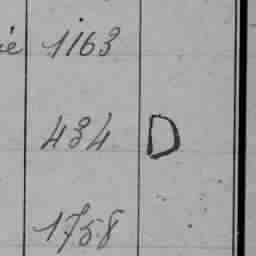 ié 1163
434 D
1758